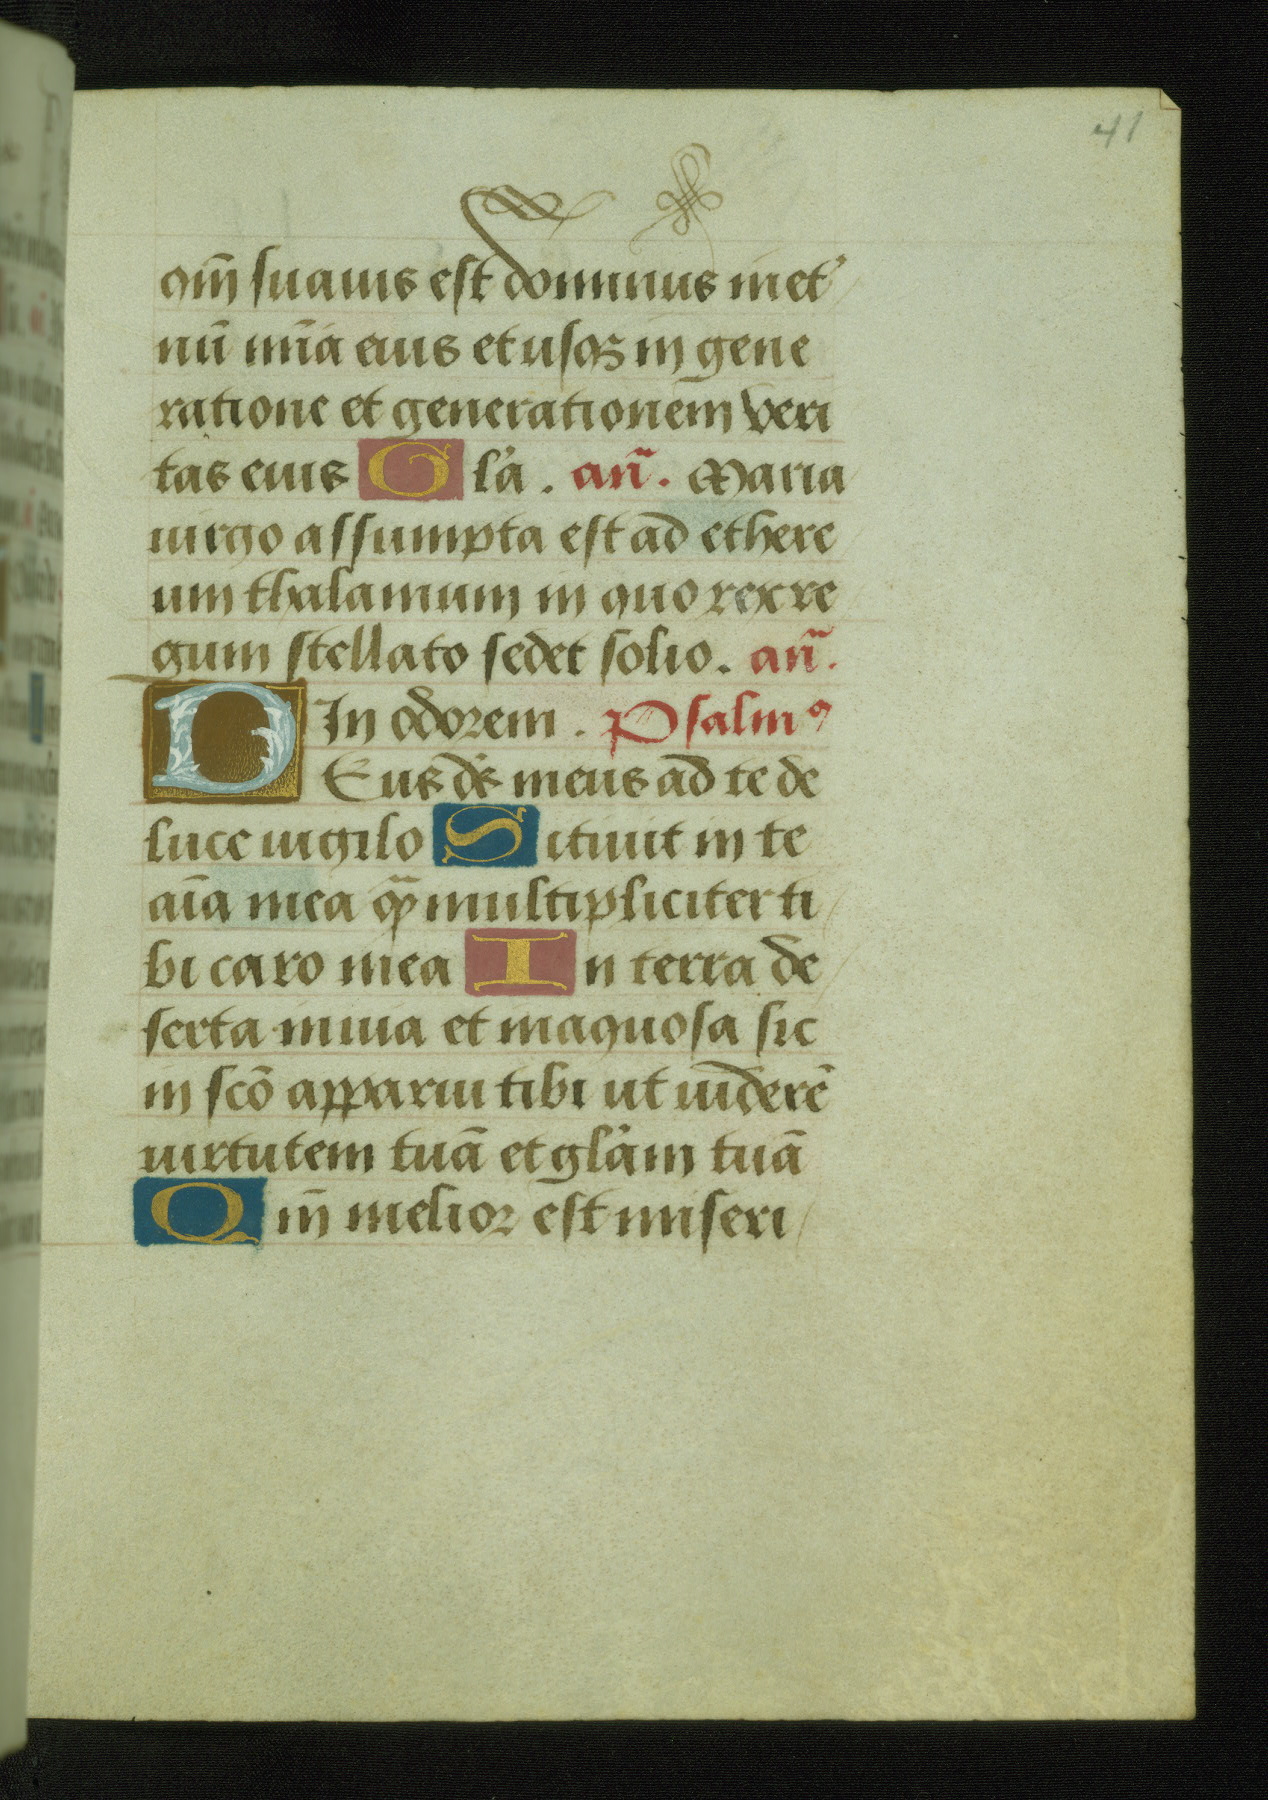 41
qm̄ suauis est dominus in et̉
nū mīa eius et usqꝫ in gene
ratione et generationem veri
tas eius Gl'a. an̄. Maria
uirgo assumpta est ad ethere
um thalamum in quo rex re
gum stellato sedet solio. an̄.
In odorem. Psalmꝰ
DEus ds̄ meus ad te de
luce uigilo Sitiuit in te
aīa mea qᷓ multipliciter ti
bi caro mea In terra de
serta inuia et inaquosa sic
in scō apparui tibi ut uiderē
uirtutem tuā et gl'am tuā
Qm̄ melior est miseri